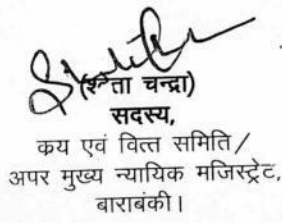 चन्द्रा)
सदस्य,
कय एवं वित्त समिति/
अपर मुख्य न्यायिक मजिस्ट्रेट,
बाराबंकी।